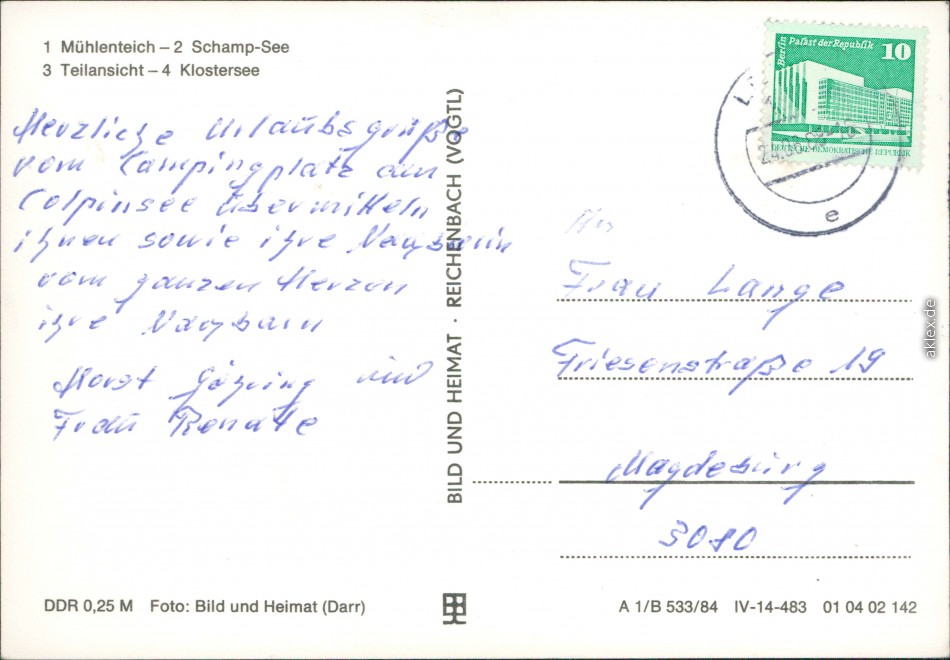 1 Mühlenteich – 2 Schamp-See
3 Teilansicht – 4 Klostersee
Herzliche Urlaubsgrüße
vom Campingplatz am
Colpinsee übermitteln
ihnen sowie ihre Nachbarin
vom ganzen Herzen
ihre Nachbarn
Horst und
Frau Renate
BILD UND HEIMAT · REICHENBACH (VOGTL)
Berlin
Palast der Republik
10
DEUTSCHE DEMOKRATISCHE REPUBLIK
e
An
Frau Lange
Friesenstraße 19
Magdeburg
3080
DDR 0,25 M Foto: Bild und Heimat (Darr)
A 1/B 533/84 IV-14-483 01 04 02 142
aklex.de